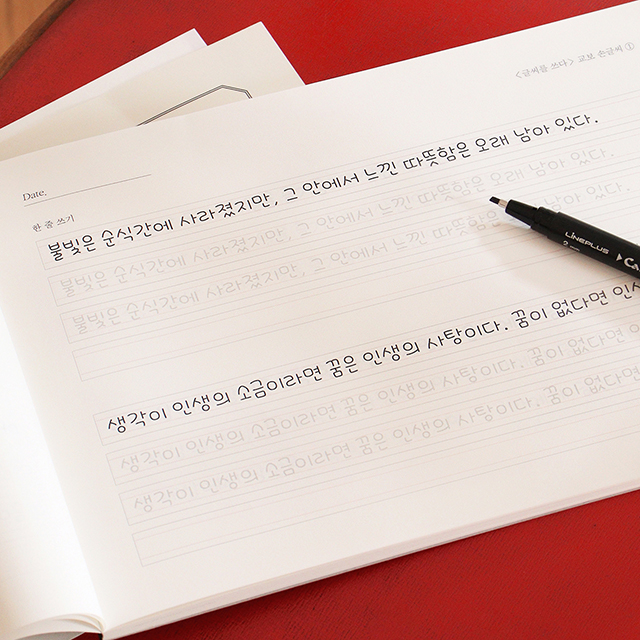 <글씨를 쓰다> 교보 손글씨 ①
Date.
한 줄 쓰기
불빛은 순식간에 사라졌지만, 그 안에서 느낀 따뜻함은 오래 남아 있다.
불빛은 순식간에 사라졌지만, 그 안에서 느낀 따뜻함은 오래 남아 있다.
불빛은 순식간에 사라졌지만, 그 안에서 느낀 따뜻함은 오래 남아 있다.
LINEPLUS
생각이 인생의 소금이라면 꿈은 인생의 사탕이다. 꿈이 없다면 인
생각이 인생의 소금이라면 꿈은 인생의 사탕이다. 꿈이 없다면
생각이 인생의 소금이라면 꿈은 인생의 사탕이다. 꿈이 없다면